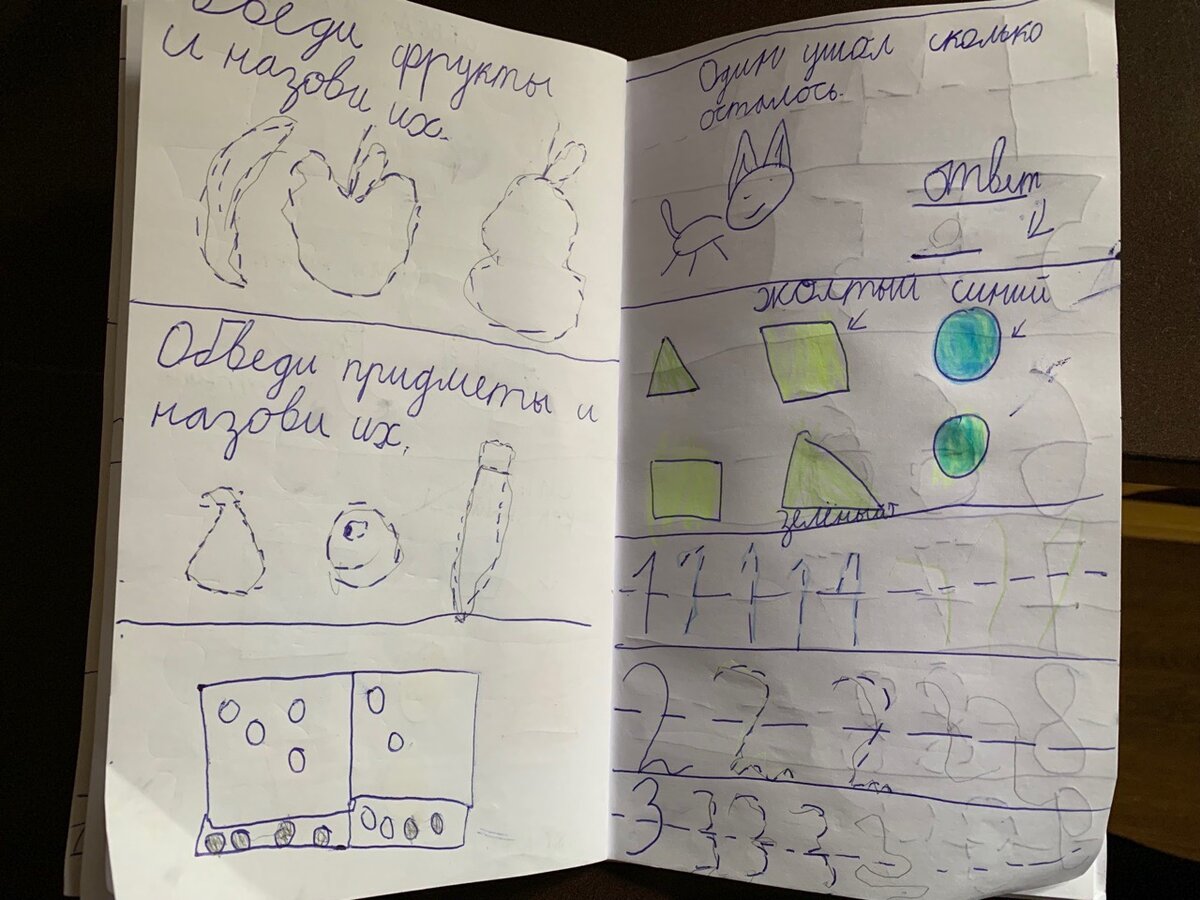 Обведи фрукты
и назови их.
Обведи придметы и
назови их.
Один ушол сколько
осталось.
ответ
жолтый синий
зелёный
1 1 1 1 1
2 2 2
3 3 3 3 3